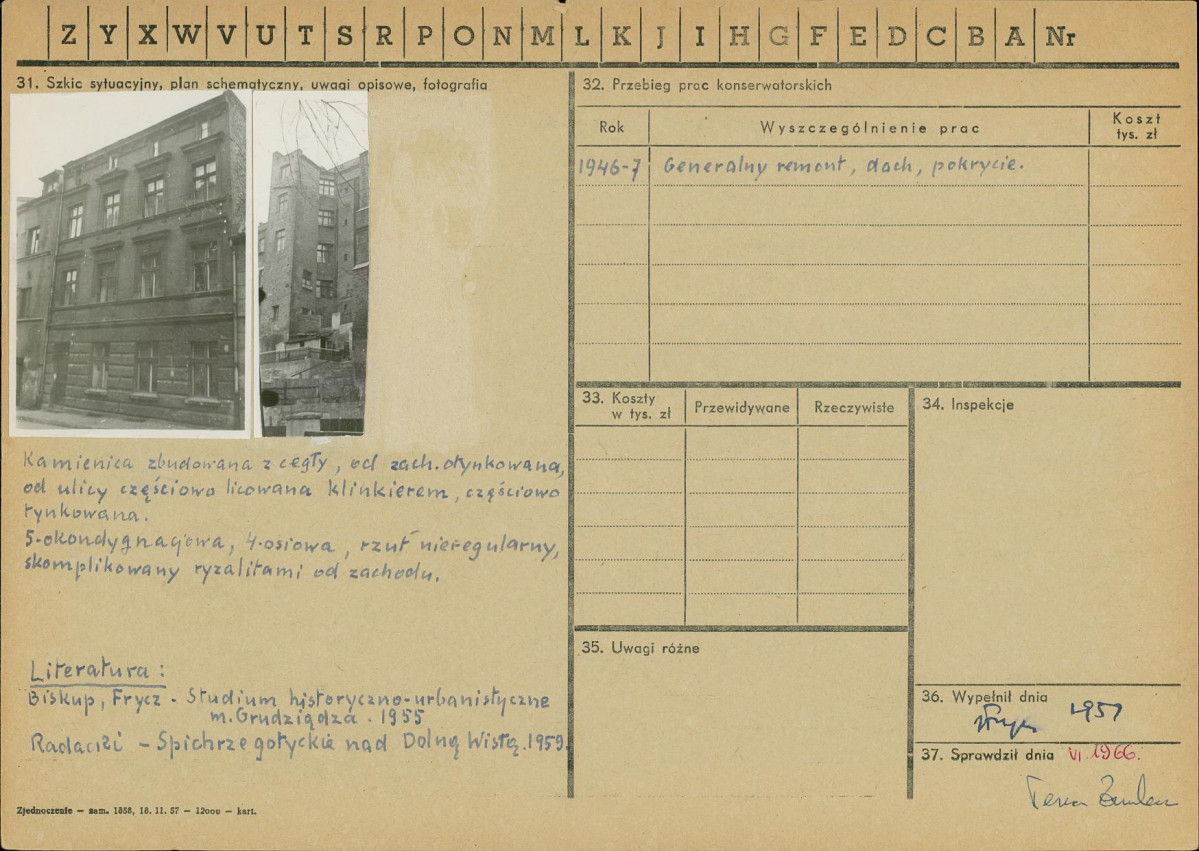 Z Y X W V U T S R P O N M L K J I H G F E D C B A Nr
31. Szkic sytuacyjny, plan schematyczny, uwagi opisowe, fotografia
Kamienica zbudowana z cegły, od zach. otynkowana,
od ulicy częściowo licowana klinkierem, częściowo
tynkowana.
5-okondygnacjowa, 4-osiowa, rzut nieregularny,
skomplikowany ryzalitami od zachodu.
Literatura:
Biskup, Frycz - Studium historyczno-urbanistyczne
m. Grudziądza. 1955
Radacki - Spichrze gotyckie nad Dolną Wisłą. 1959.
Zjednoczenie — zam. 1858, 18. 11. 57 — 12000 — kart.
32. Przebieg prac konserwatorskich
Rok Wyszczególnienie prac Koszt tys. zł
1946-7 Generalny remont, dach, pokrycie.
33. Koszty w tys. zł Przewidywane Rzeczywiste
34. Inspekcje
35. Uwagi różne
36. Wypełnił dnia
1959
37. Sprawdził dnia VI.1966.